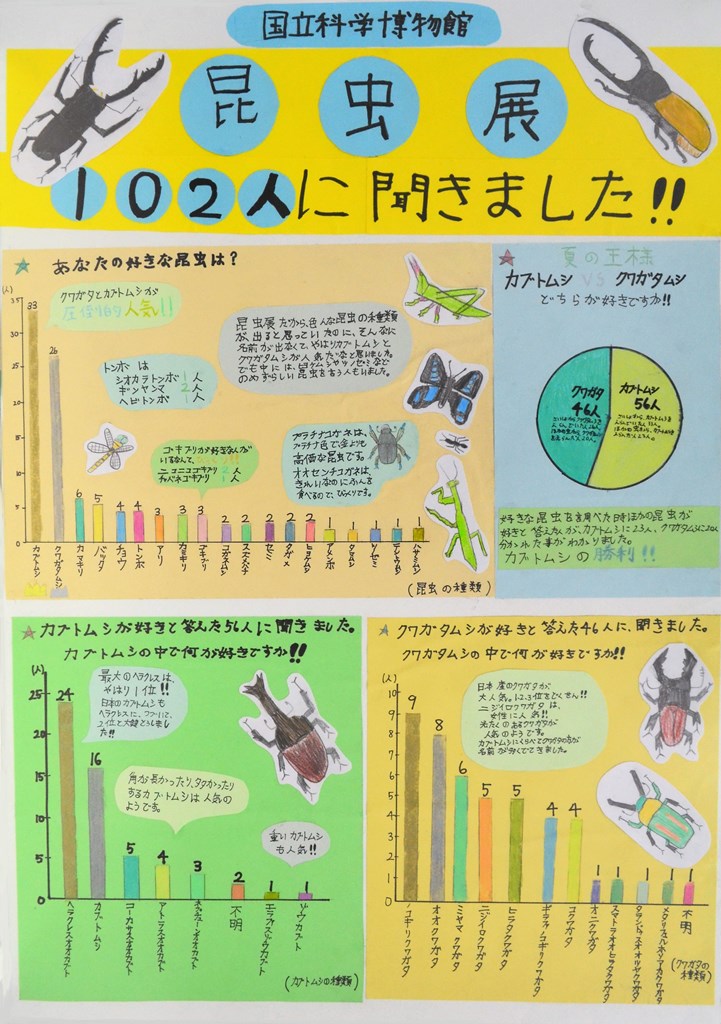 国立科学博物館
昆虫展
102人に聞きました!!
あなたの好きな昆虫は?
(人)
クワガタとカブトムシが
圧倒的人気!!
昆虫展だから、色んな昆虫の種類
が、出ると思っていたのに、そんなに
名前が出なくて、やはりカブトムシと
クワガタムシが人気だなと思いました。
のめずらしい昆虫を言う人もいました。
トンボは
シオカラトンボ 1人
ギンヤンマ 2人
ヘビトンボ 1人
ゴキブリが好きな人が
いるなんて、
ニジュウシトリバ
プラチナコガネは、
プラチナ色で金よりも
高価な昆虫です。
オオセンチコガネは、
きれいなのにふんを
食べるので、びっくりです。
35
30
25
20
15
10
5
0
33 26 6 5 4 4 3 4 3 2 2 2 2 2 1 1 1 1 1
カブトムシ
クワガタムシ
カマキリ
バッタ
チョウ
トンボ
アリ
カミキリ
ゴキブリ
コガネムシ
セミ
(昆虫の種類)
夏の王様
カブトムシ VS クワガタムシ
どちらが好きですか!!
クワガタ
46人
カブトムシ
56人
好きな昆虫を調べた時、ほかの昆虫が
好きと答えた人が、カブトムシに23人、クワガタムシに20人
分かれた事がわかりました。
カブトムシの勝利!!
カブトムシが好きと答えた56人に聞きました。
カブトムシの中で何が好きですか!!
(人)
最大のヘラクレスは、
やはり1位!!
日本のカブトムシも
角が長かったり、多かったり
するカブトムシは人気の
ようです。
重いカブトムシ
も人気!!
25
20
15
10
5
0
24 16 5 4 3 2 1 1
ヘラクレスオオカブト
カブトムシ
コーカサスオオカブト
アトラスオオカブト
ネプチューンオオカブト
不明
エレファスゾウカブト
ゾウカブト
(カブトムシの種類)
クワガタムシが好きと答えた46人に、聞きました。
クワガタムシの中で何が好きですか!!
(人)
日本産のクワガタが
大人気。1.2.3位をどくせん!!
ニジイロクワガタは、
女性に人気!!
光たくのあるクワガタが
人気のようです。
カブトムシにくらべてクワガタの方が
名前が多くでてきました。
10
9
8
7
6
5
4
3
2
1
0
9 8 6 5 5 4 4 1 1 1 1 1
ノコギリクワガタ
オオクワガタ
ミヤマクワガタ
ニジイロクワガタ
ヒラタクワガタ
ギラファノコギリクワガタ
コクワガタ
オニクワガタ
スマトラオオヒラタクワガタ
タランドゥスオオツヤクワガタ
メタリフェルホソアカクワガタ
不明
(クワガタの
種類)